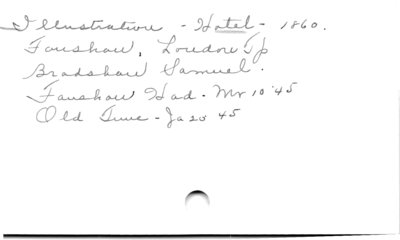 Illustration - Hotel - 1860.
Fanshaw, London Tp
Bradshaw Samuel.
Fanshaw Had - Mr 10 '45
Old Time - Ja 20 45